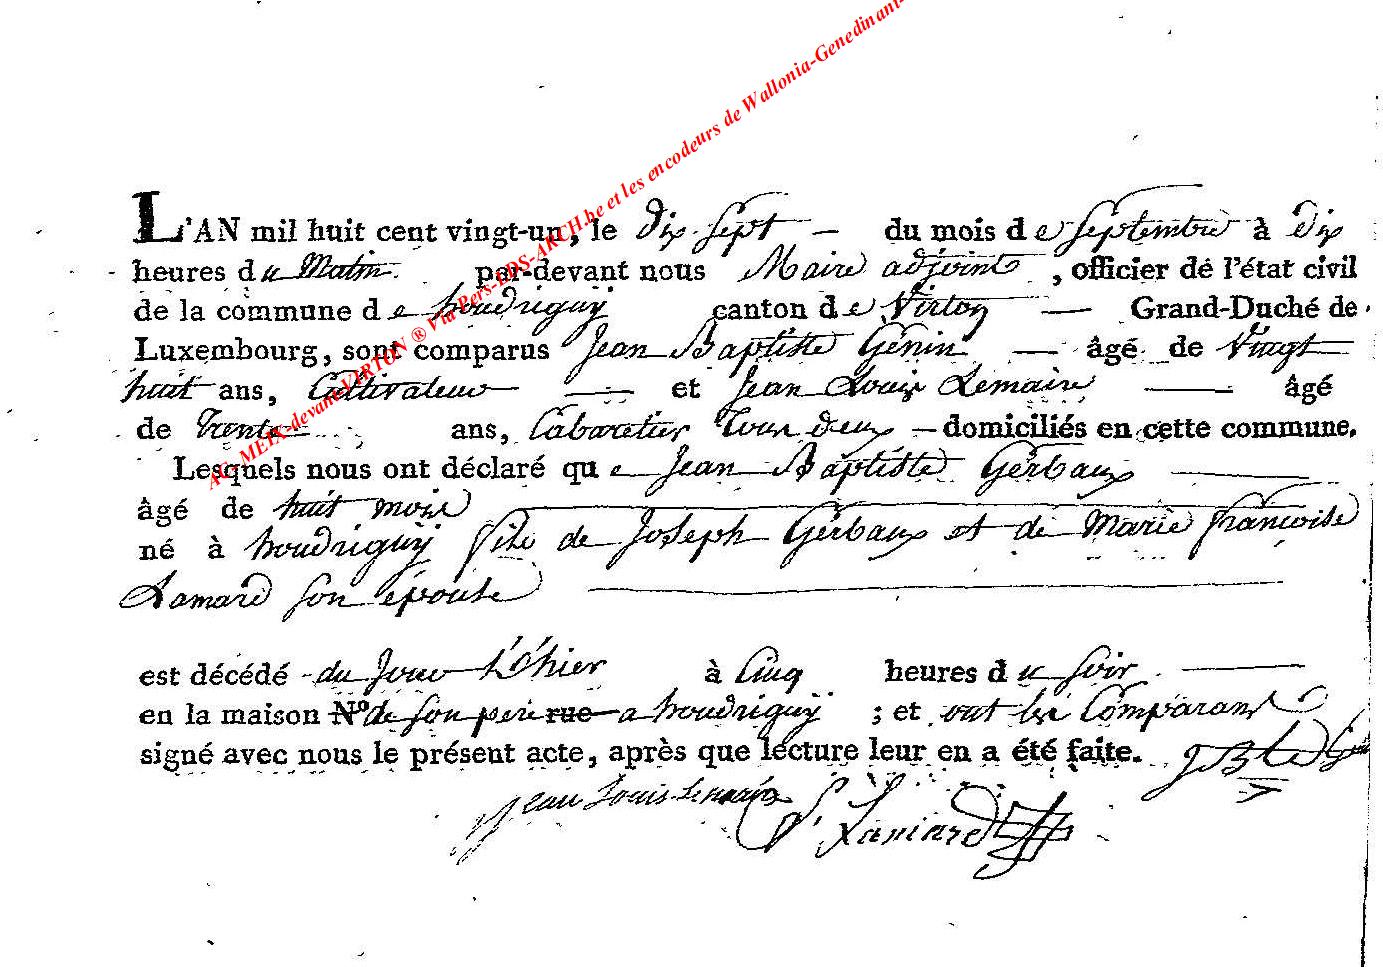 L'AN mil huit cent vingt-un, le Dix Sept du mois de Septembre à Dix
heures du Matin par-devant nous Maire adjoint, officier de l'état civil
de la commune de houdriguÿ canton de Virton Grand-Duché de
Luxembourg, sont comparus Jean Baptiste Génin âgé de Vingt
huit ans, Cultivateur et Jean Louis Lemaire âgé
de Trente ans, Cabaretier Tous deux domiciliés en cette commune.
Lesquels nous ont déclaré que Jean Baptiste Gérbaux
âgé de huit mois
né à houdriguÿ fils de Joseph Gérbaux et de Marie françoise
Lamard son épouse
est décédé du Jour d'hier à Cinq heures du Soir
en la maison N° de son pere rue a houdriguÿ ; et ont les Comparans
signé avec nous le présent acte, après que lecture leur en a été faite.
Jean Louis Lemaire Lamard
AC- MEIX-devant-VIRTON ® Via Pers-BDS-ARCH.be et les encodeurs de Wallonia-Genedinant-